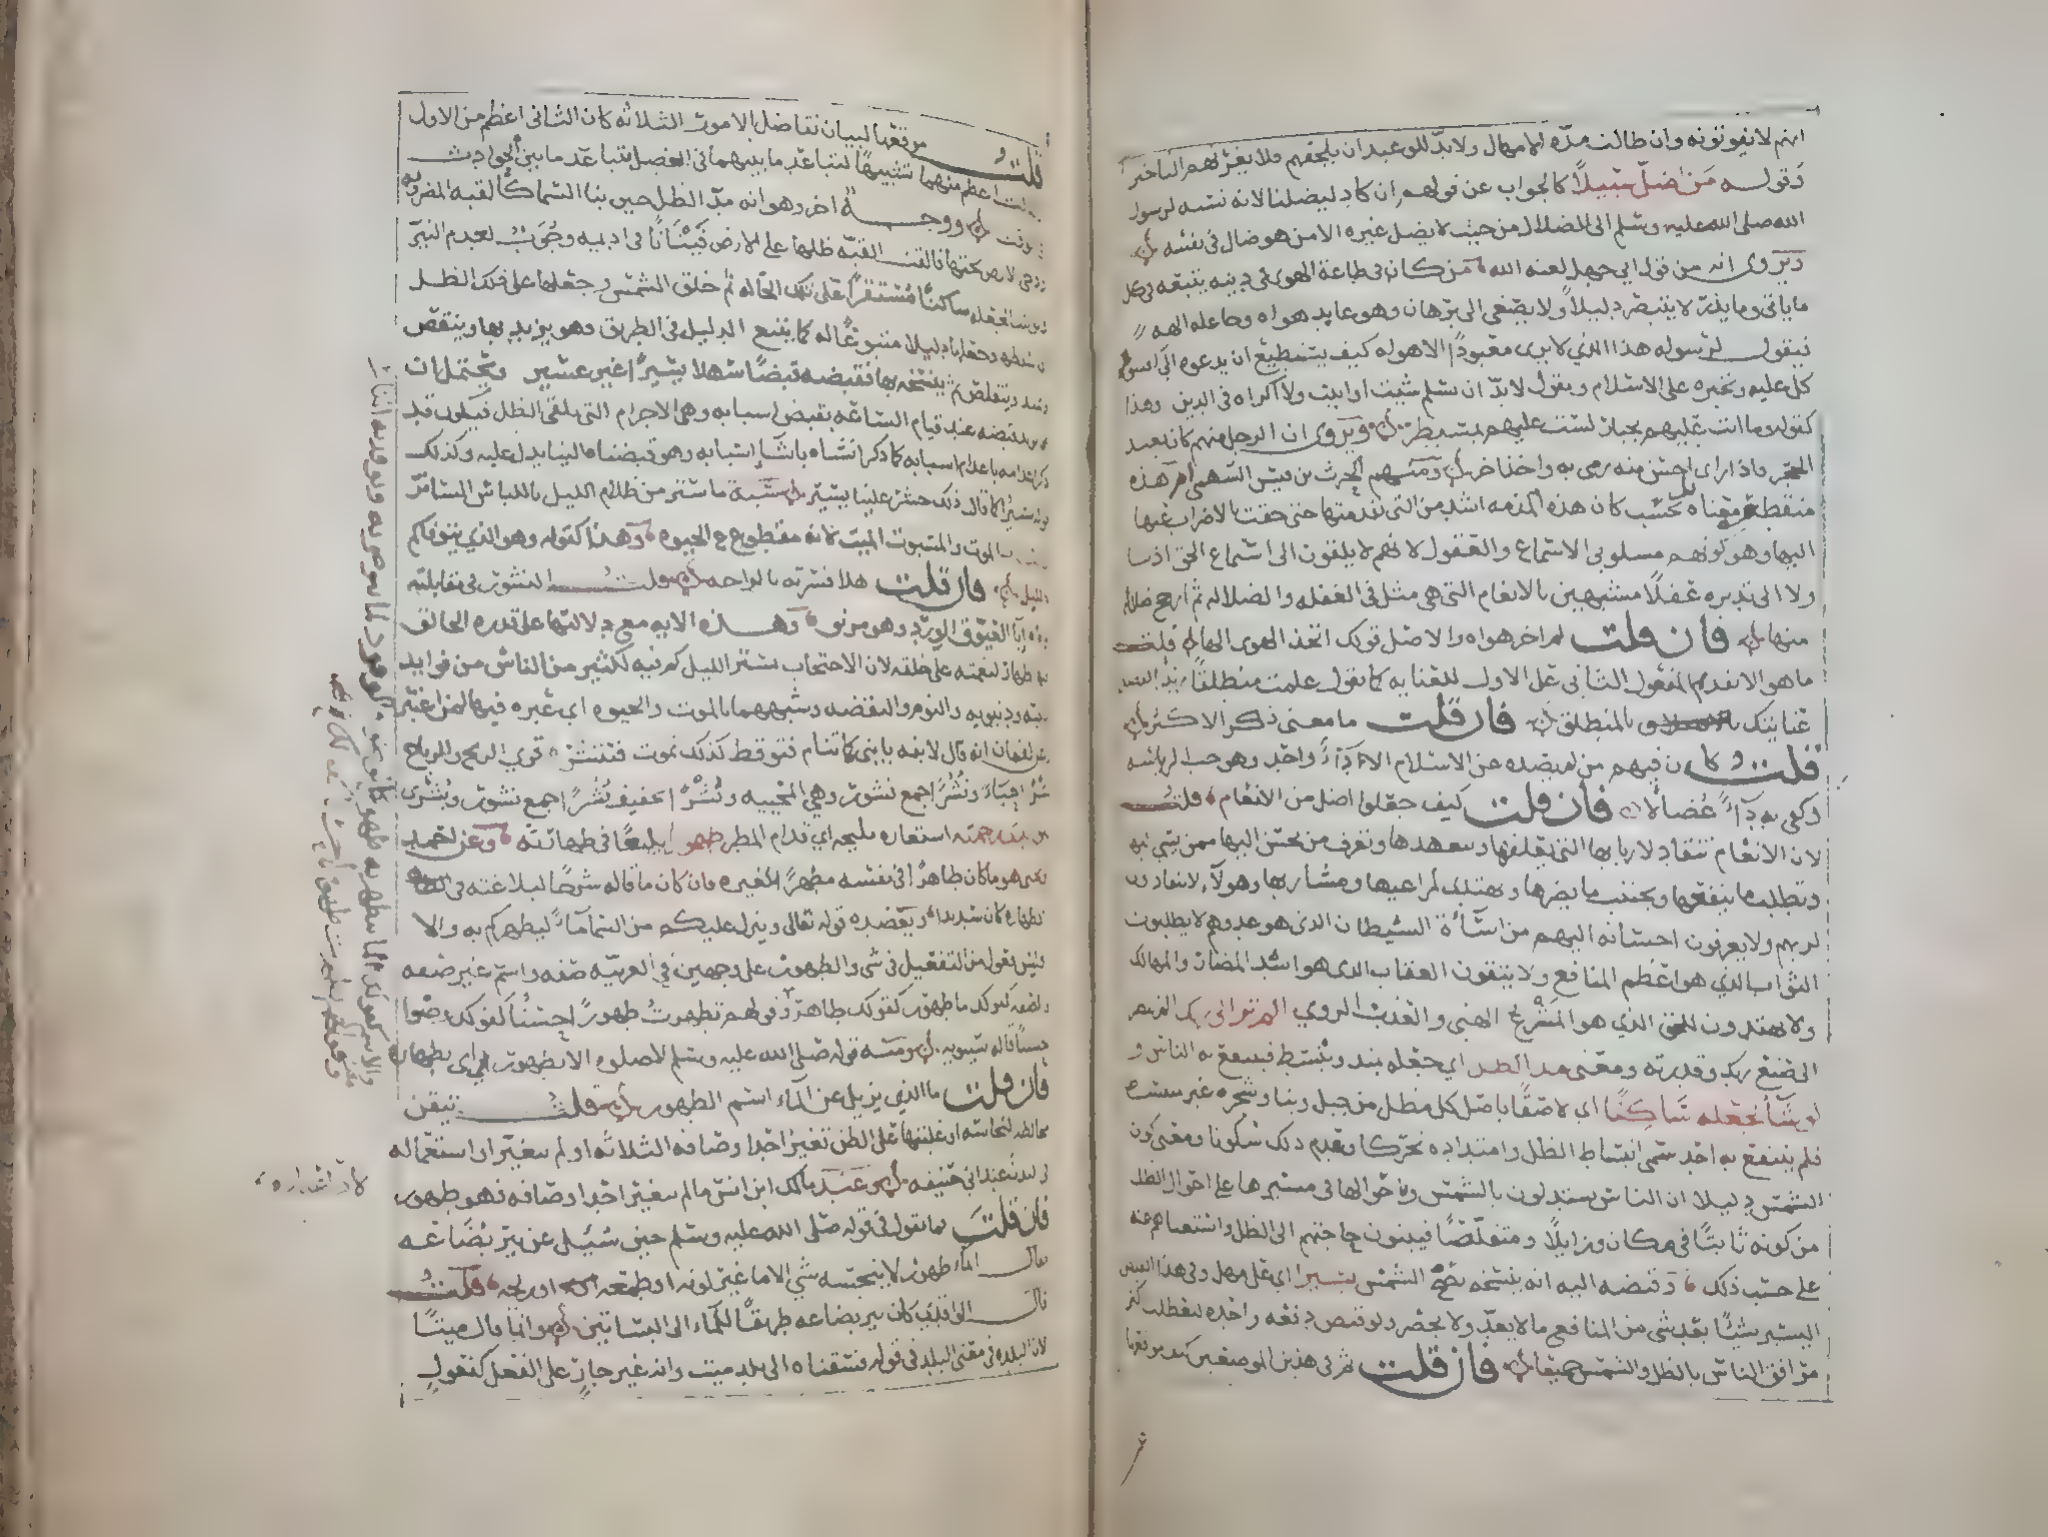 انهم لا يفوتونه وان طالت مدة الامهال ولا بد للوعيد ان يلحقهم فلا يغرنهم التاخير
وقوله من اضل سبيلا كالجواب عن قولهم ان كاد ليضلنا لانه نسبة لرسول
الله صلى الله عليه وسلم الى الضلال من حيث لا يضل غيره الا من هو ضال في نفسه
ويروى انه من قول ابي جهل لعنه الله من كان في طاعة الهوى في دينه يتبعه في كل
ما ياتي وما يذر لا يتبصر دليلا ولا يصغي الى برهان فهو عابد هواه وجاعله الهه
فيقول لرسوله هذا الذي لا يرى معبودا الا هواه كيف يستطيع ان يدعوه الى
كل عليه وتجبره على الاسلام ويقول لا بد ان تسلم شيت او ابيت ولا اكراه في الدين وهذا
كقوله وما انت عليهم بجبار لست عليهم بمسيطر ويروى ان الرجل منهم كان يعبد
الحجر فاذا راى احسن منه رمى به واخذ اخر ومنهم الحرث بن قيس السهمي ام هذه
منقطعة معناه بل تحسب كان هذه المذمة اشد من التي تقدمتها حتى حقت بالاضراب عنها
اليها وهو كونهم مسلوبي الاسماع والعقول لانهم لا يلقون الى استماع الحق اذنا
ولا الى تدبره عقلا مشبهين بالانعام التي هي مثل في الغفلة والضلالة ثم ارجح ضلالة
منها فان قلت لم اخر هواه والاصل قولك اتخذ الهوى الها قلت
ما هو الا تقديم المفعول الثاني على الاول للعناية كما تقول علمت منطلقا زيدا لفضل
عنايتك بالمنطلق فان قلت ما معنى ذكر الاكثر
قلت كان فيهم من لم يصده عن الاسلام الا دا واحد وهو حب الرياسة
وكفى به دا عضالا فان قلت كيف جعلوا اضل من الانعام قلت
لان الانعام تنقاد لاربابها التي تعلفها وتتعهدها وتعرف من يحسن اليها ممن يسي اليها
وتطلب ما ينفعها وتجتنب ما يضرها وتهتدي لمراعيها ومشاربها وهولاء لا ينقادون
لربهم ولا يعرفون احسانه اليهم من اساة الشيطان الذي هو عدوهم ولا يطلبون
الثواب الذي هو اعظم المنافع ولا يتقون العقاب الذي هو اشد المضار والمهالك
ولا يهتدون للحق الذي هو المشرع الهني والعذب الروي الم تر الى ربك الم تنظر
الى صنع ربك وقدرته ومعنى مد الظل اي جعله يمتد وينبسط فينتفع به الناس
ولو شا لجعله ساكنا اي لاصقا باصل كل مظل من جبل وبنا وشجرة غير منبسط
فلم ينتفع به احد سمى انبساط الظل وامتداده تحركا منه وعدم ذلك سكونا ومعنى كون
الشمس دليلا ان الناس يستدلون بالشمس وباحوالها في مسيرها على احوال الظل
من كونه ثابتا في مكان وزايلا ومتقلصا فيبنون حاجتهم الى الظل واستغناهم عنه
على حسب ذلك وقبضه اليه انه ينسخه بضح الشمس يسيرا اي على مهل وفي هذا القبض
اليسير شيئا بعد شي من المنافع ما لا يعد ولا يحصر ولو قبض دفعة واحدة لتعطلت اكثر
مرافق الناس بالظل والشمس جميعا فان قلت ثم في هذين الموضعين كيف موقعها
قلت موقعها لبيان تفاضل الامور الثلاثة كان الثاني اعظم من الاول
والثالث اعظم منهما تشبيها لتباعد ما بينهما في الفضل بتباعد ما بين الحوادث
في الوقت ووجه اخر وهو انه مد الظل حين بنا السما كالقبة المضروبة
ودحى الارض تحتها فالقت القبة ظلها على الارض فينانا ما في اديمه وجوب لعدم النير
ولو شا لجعله ساكنا مستقرا على تلك الحالة ثم خلق الشمس وجعلها على ذلك الظل
اي سلطها وجعلها دليلا متبوعا له كما يتبع الدليل في الطريق فهو يزيد بها وينقص
ويمتد ويتقلص ثم ينسخه بها فقبضه قبضا سهلا يسيرا غير عسير ويحتمل ان
يريد قبضه عند قيام الساعة بقبض اسبابه وهي الاجرام التي تلقي الظل فيكون قد
ذكر اعدامه باعدام اسبابه كما ذكر انشاه بانشا اسبابه وهو قبضناه الينا يدل عليه وكذلك
قوله يسيرا كما قال ذلك حشر علينا يسير شبه ما ستر من ظلام الليل باللباس الساتر
والسبات الموت والمسبوت الميت لانه مقطوع الحيوة وهذا كقوله وهو الذي يتوفاكم
بالليل فان قلت هلا فسرته بالراحة قلت النشور في مقابلته
ياباه ابا العيوف الورد وهو مرنق وهذه الاية مع دلالتها على قدرة الخالق
فيها اظهار لنعمته على خلقه لان الاحتجاب بستر الليل كم فيه لكثير من الناس من فوايد
دينية ودنيوية والنوم واليقظة وشبههما بالموت والحيوة اي عبرة فيها لمن اعتبر
وعن لقمان انه قال لابنه يا بني كما تنام فتوقظ كذلك تموت فتنشر قري الريح والرياح
نشرا احياء ونشرا جمع نشور وهي المحيية ونشرا تخفيف نشرا جمع نشور وبشرى
بين يدي رحمته استعارة مليحة اي قدام المطر طهورا بليغا في طهارته وعن احمد بن
يحيى هو ما كان طاهرا في نفسه مطهرا لغيره فان كان ما قاله شرحا لبلاغته في
الطهارة كان سديدا ويعضده قوله تعالى وينزل عليكم من السما ماء ليطهركم به والا
فليس فعول من التفعيل في شي والطهور على وجهين في العربية صفة واسم غير صفة
فالصفة كقولك ما طهور كقولك طاهر وقولهم تطهرت طهورا حسنا كقولك وضوا
حسنا قاله سيبويه ومنه قوله صلى الله عليه وسلم لا صلوة الا بطهور اي بطهارة
فان قلت ما الذي يزيل عن الماء اسم الطهور قلت تيقن
مخالطة النجاسة او غلبتها على الظن تغير احد اوصافه الثلاثة او لم يتغير او استعماله
في البدن عند ابي حنيفة وعند مالك ابن انس ما لم يتغير احد اوصافه فهو طهور
فان قلت فما تقول في قوله صلى الله عليه وسلم حين سئل عن بير بضاعة
فقال الماء طهور لا ينجسه شي الا ما غير لونه او طعمه او ريحه قلت
قال الواقدي كان بير بضاعة طريقا للماء الى البساتين وانما قال ميتا
لان البلدة في معنى البلد في قوله فسقناه الى بلد ميت وانه غير جار على الفعل كفعول